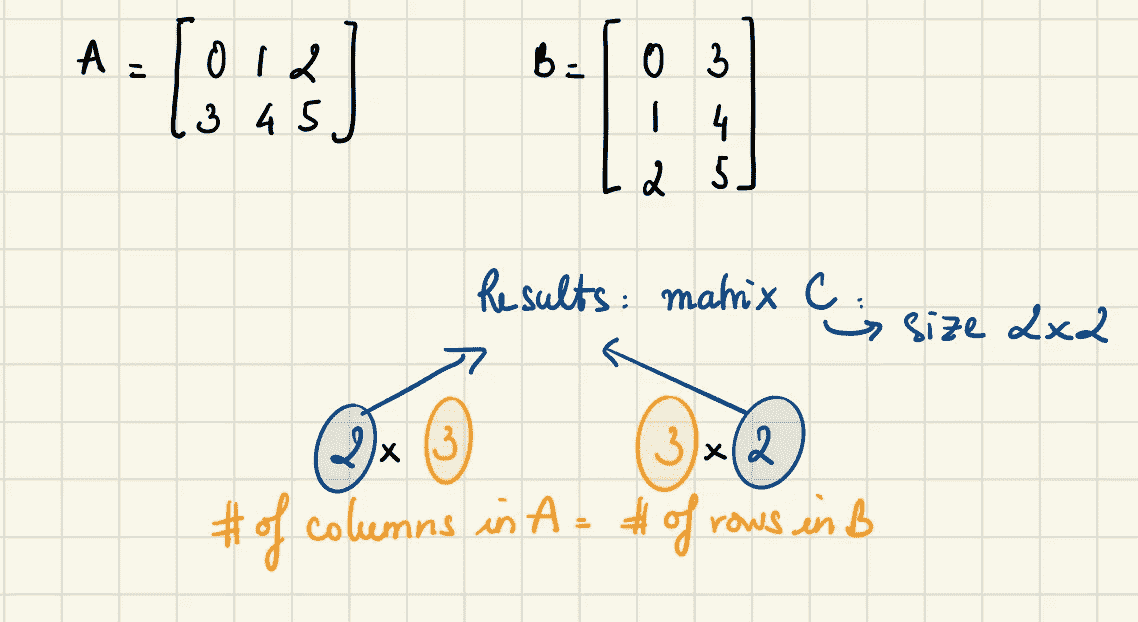 A = [ 0 1 2
3 4 5 ]
B = [ 0 3
1 4
2 5 ]
Results: matrix C :
size 2x2
2 x 3
3 x 2
# of columns in A = # of rows in B